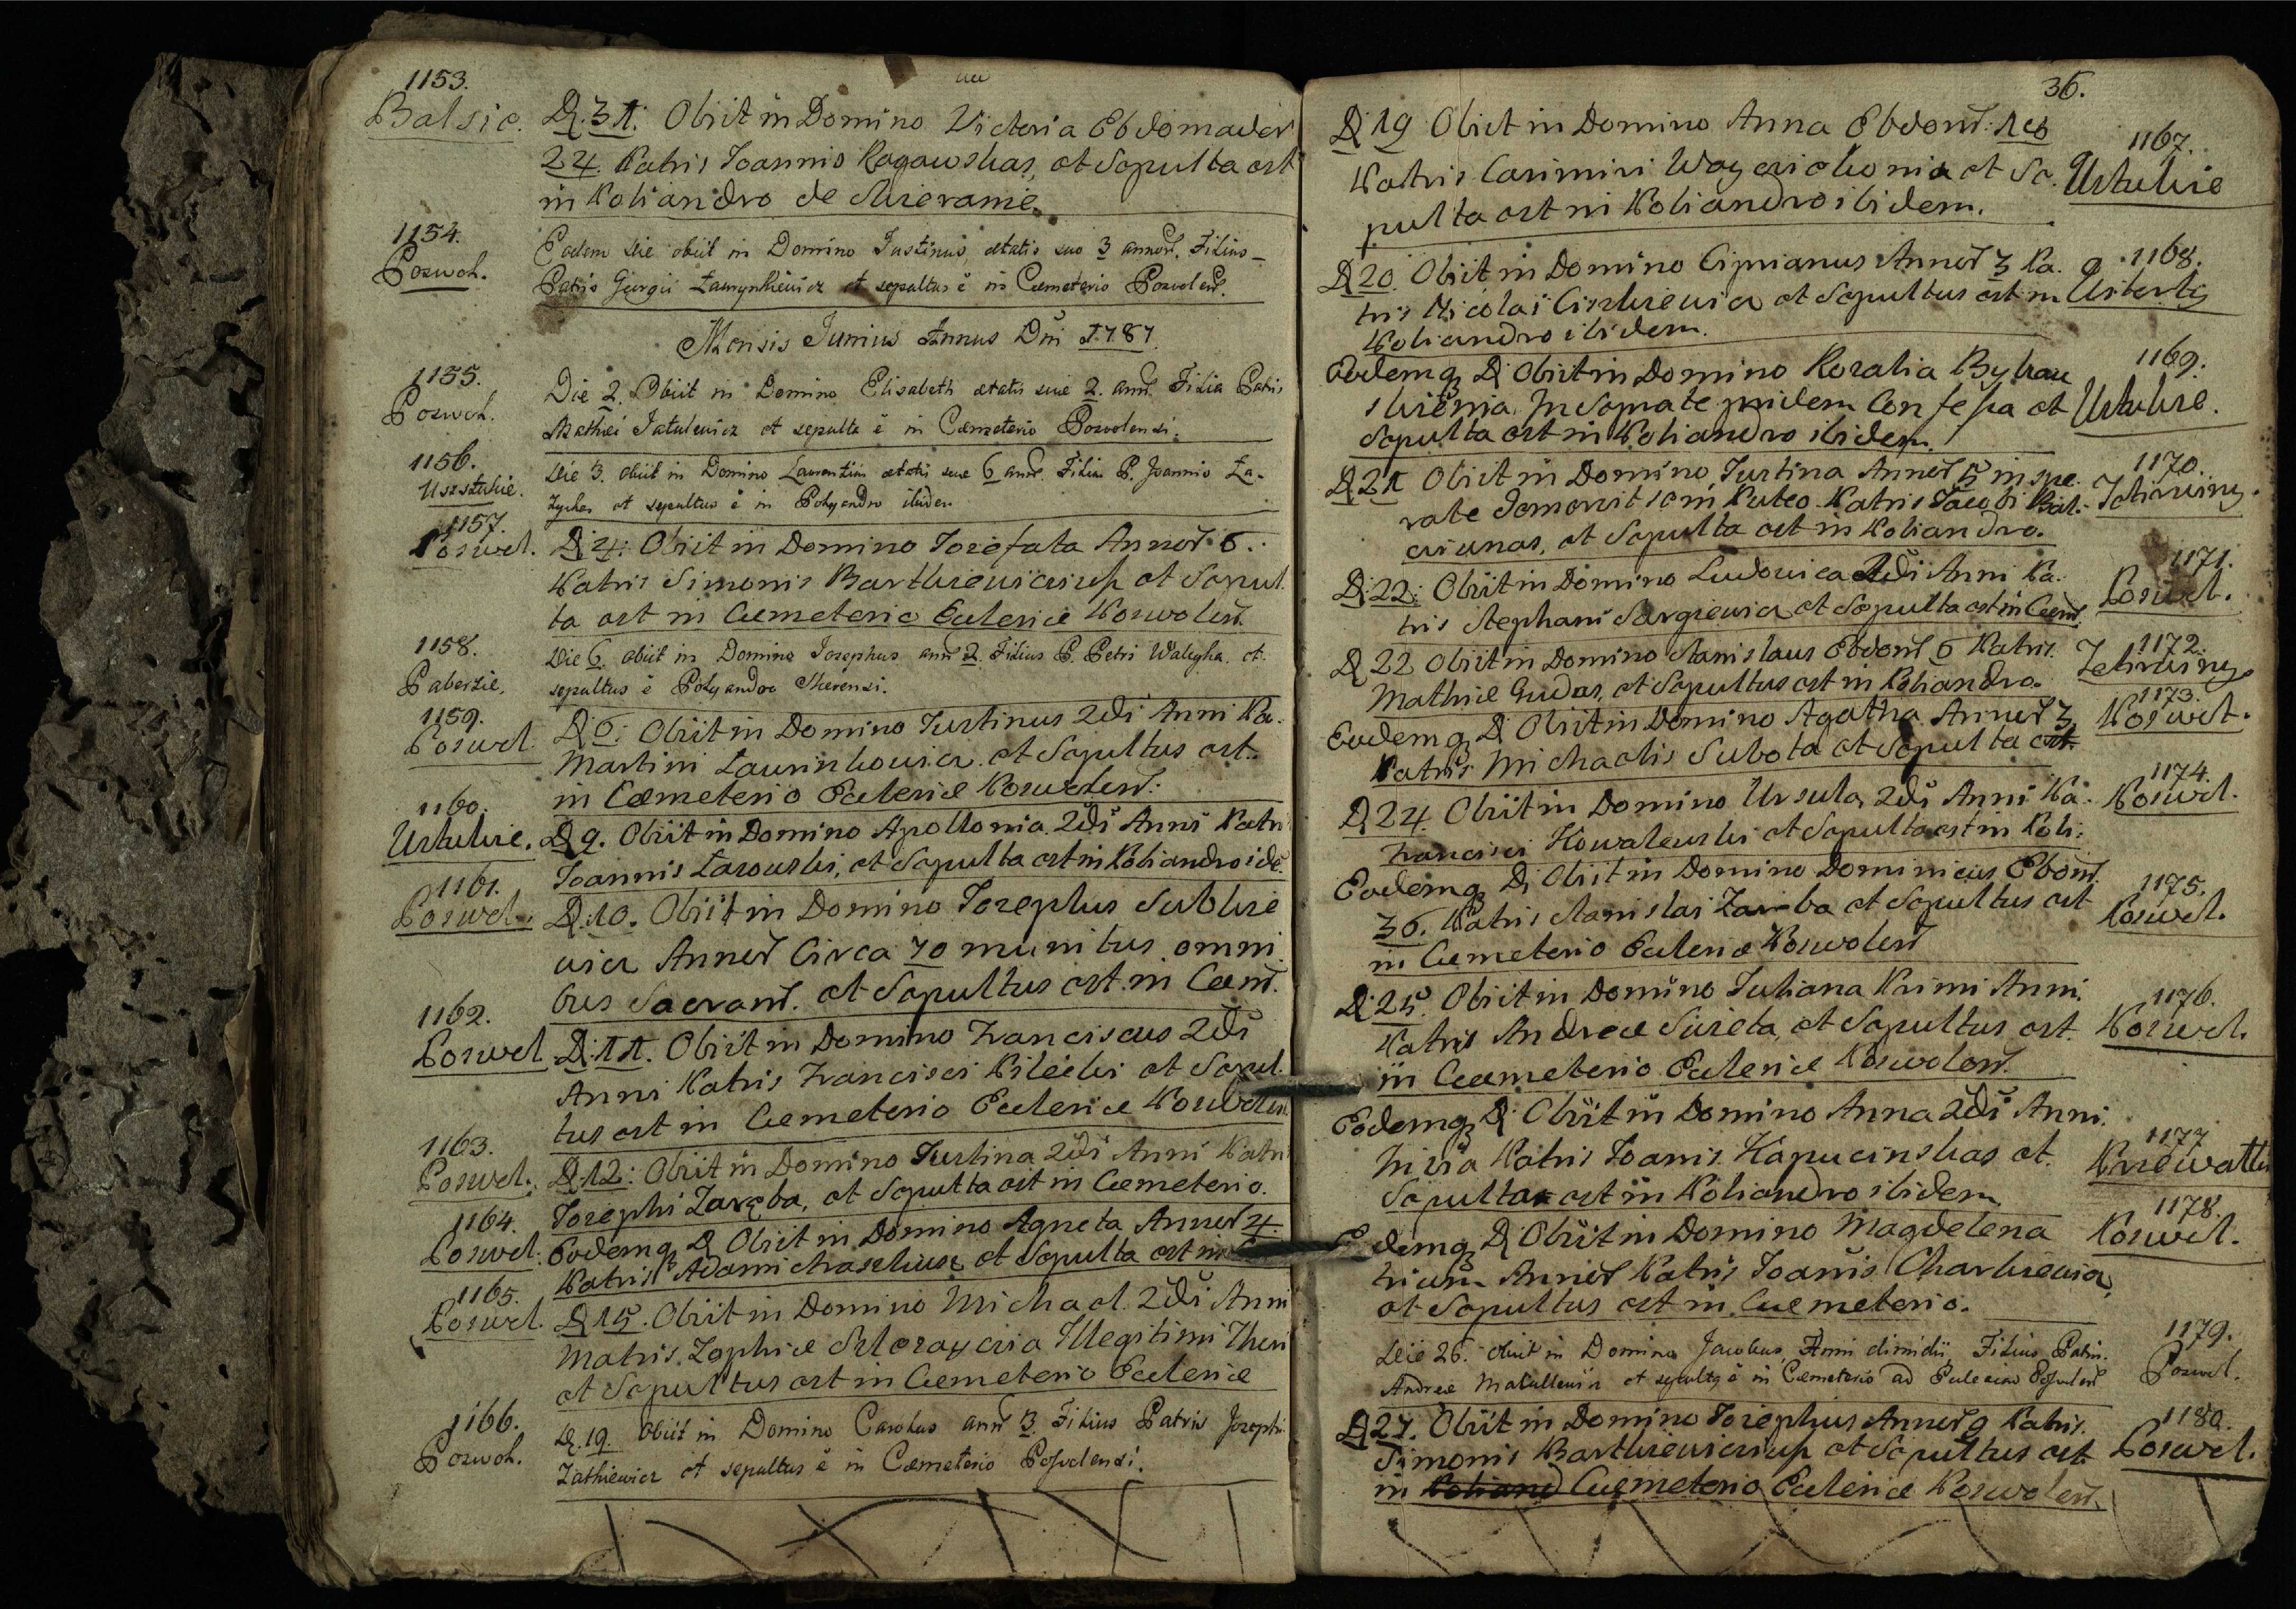 1153.
Balsie. D. 31. Obiit in Domino Victoria Ebdomader
24. Patris Joannis Ragawskas, et Sepulta est
in Poliandro de
1154.
Poswol. Eadem die obiit in Domino Justinus, ætatis suo 3 annor. Filius
Patris Georgii Ławrynkiewicz et sepultus ē in Cæmeterio Poswolen.
Mensis Junius Annus Dni 1787.
1155.
Poswol. Die 2. Obiit in Domino Elisabeth ætatis suæ 2. ann. Filia Patris
Mathiæi Jatulewicz et sepulta ē in Cæmeterio Poswolensi.
1156.
Uszstukie. Die 3. obiit in Domino Laurentius ætatis suæ 6 ann. Filius P. Joannis Ła-
et sepultus ē in Polyandro ibidem
1157.
Poswol. D. 4. Obiit in Domino Josefata Annor. 6.
Patris Simonis et Sepul
ta est in Cæmeterio Eclesiæ Poswolen.
1158.
Paberzie. Die 6. obiit in Domino Josephus ann 2. Filius P. Petri et
sepultus ē Polyandro
1159.
Poswol. D. 6. Obiit in Domino Justinus 2di Anni Pa.
Martini Laurinkowicz et Sepultus est
in Cæmeterio Eclesiæ Poswolen.
1160.
Ustukie. D 9. Obiit in Domino Apollonia 2di Anni Patri
Joannis Łazowski, et Sepulta est in Poliandro ide.
1161.
Poswol. D. 10. Obiit in Domino Josephus Subkie
wicz Annor Circa 70 munitus omni
bus Sacram. et Sepultus est in Cæm.
1162.
Poswol. D. 11. Obiit in Domino Franciscus 2di
Anni Patris Francisci Pilecki et Sepul.
tus est in Cæmeterio Eclesiæ Poswolen
1163.
Poswol. D. 12: Obiit in Domino Justina 2di Anni Patri
Josephi Zaręba, et Sepulta est in Cæmeterio.
1164.
Poswol. Eodemq D Obiit in Domino Agneta Annor 4.
Patris Adami et Sepulta est in
1165.
Poswol. D 15. Obiit in Domino Michael 2di Anni
Matris Zophiæ Illegitimi Thori
et Sepultus est in Cæmeterio Eclesiæ
1166.
Poswol. D. 19. Obiit in Domino Carolus ann 3. Filius Patris Josephi
Zathiewicz et sepultus ē in Cæmeterio Posvolensi.
36.
D 19 Obiit in Domino Anna Ebdom.
1167.
Patris Casimiri et Se. Ustukie
pulta est in Poliandro ibidem.
D 20. Obiit in Domino Ciprianus Annor 3 Pa. 1168.
tris Nicolai et Sepultus est in
Poliandro ibidem.
Eodemq D Obiit in Domino Rozalia 1169.
In Sepnate pridem Confessa et Ustukie.
Sepulta est in Poliandro ibidem.
D 21 Obiit in Domino Justina Annor 5 1170.
Puteo Patris Jacobi
et Sepulta est in Poliandro.
D. 22. Obiit in Domino Ludovica 2di Anni Pa. 1171.
tris Stephani Sargiewicz et Sepulta est in Cæm. Poswol.
D 22 Obiit in Domino Stanislaus Ebdom 6 Patris. 1172.
Mathiæ Gudas, et Sepultus est in Poliandro.
Eodemq D Obiit in Domino Agatha Annor 3 1173.
Patris Michaelis Subota et Sepulta est. Poswol.
D 24. Obiit in Domino Ursula 2di Anni Pa. 1174.
Francisci Kowalewski et Sepulta est in Poli. Poswol.
Eodemq D Obiit in Domino Dominicus Ebom. 1175.
36. Patris Stanislai Zaręba et Sepultus est Poswol.
in Cæmeterio Eclesiæ Poswolen
D 25. Obiit in Domino Juliana Primi Anni. 1176.
Patris Andreæ Sureta, et Sepultus est. Poswol.
in Cæmeterio Eclesiæ Poswolen.
Eodemq D. Obiit in Domino Anna 2di Anni. 1177
Patris Joanis Kapucinskas et
Sepulta est in Poliandro ibidem
Eodemq D Obiit in Domino Magdelena 1178.
trium Annor Patris Joanis Charkiewicz Poswol.
et Sepultus est in Cæmeterio.
Die 26. obiit in Domino Jacobus Anni dimidii Filius Patri. 1179.
Andreæ Matullewicz et sepultus ē in Cæmeterio ad Eclesiam Posvolen Poswol.
D 27. Obiit in Domino Josephus Annor 9 Patris. 1180.
Simonis et Sepultus est Poswol.
in Poliand Cæmeterio Eclesiæ Poswolen.